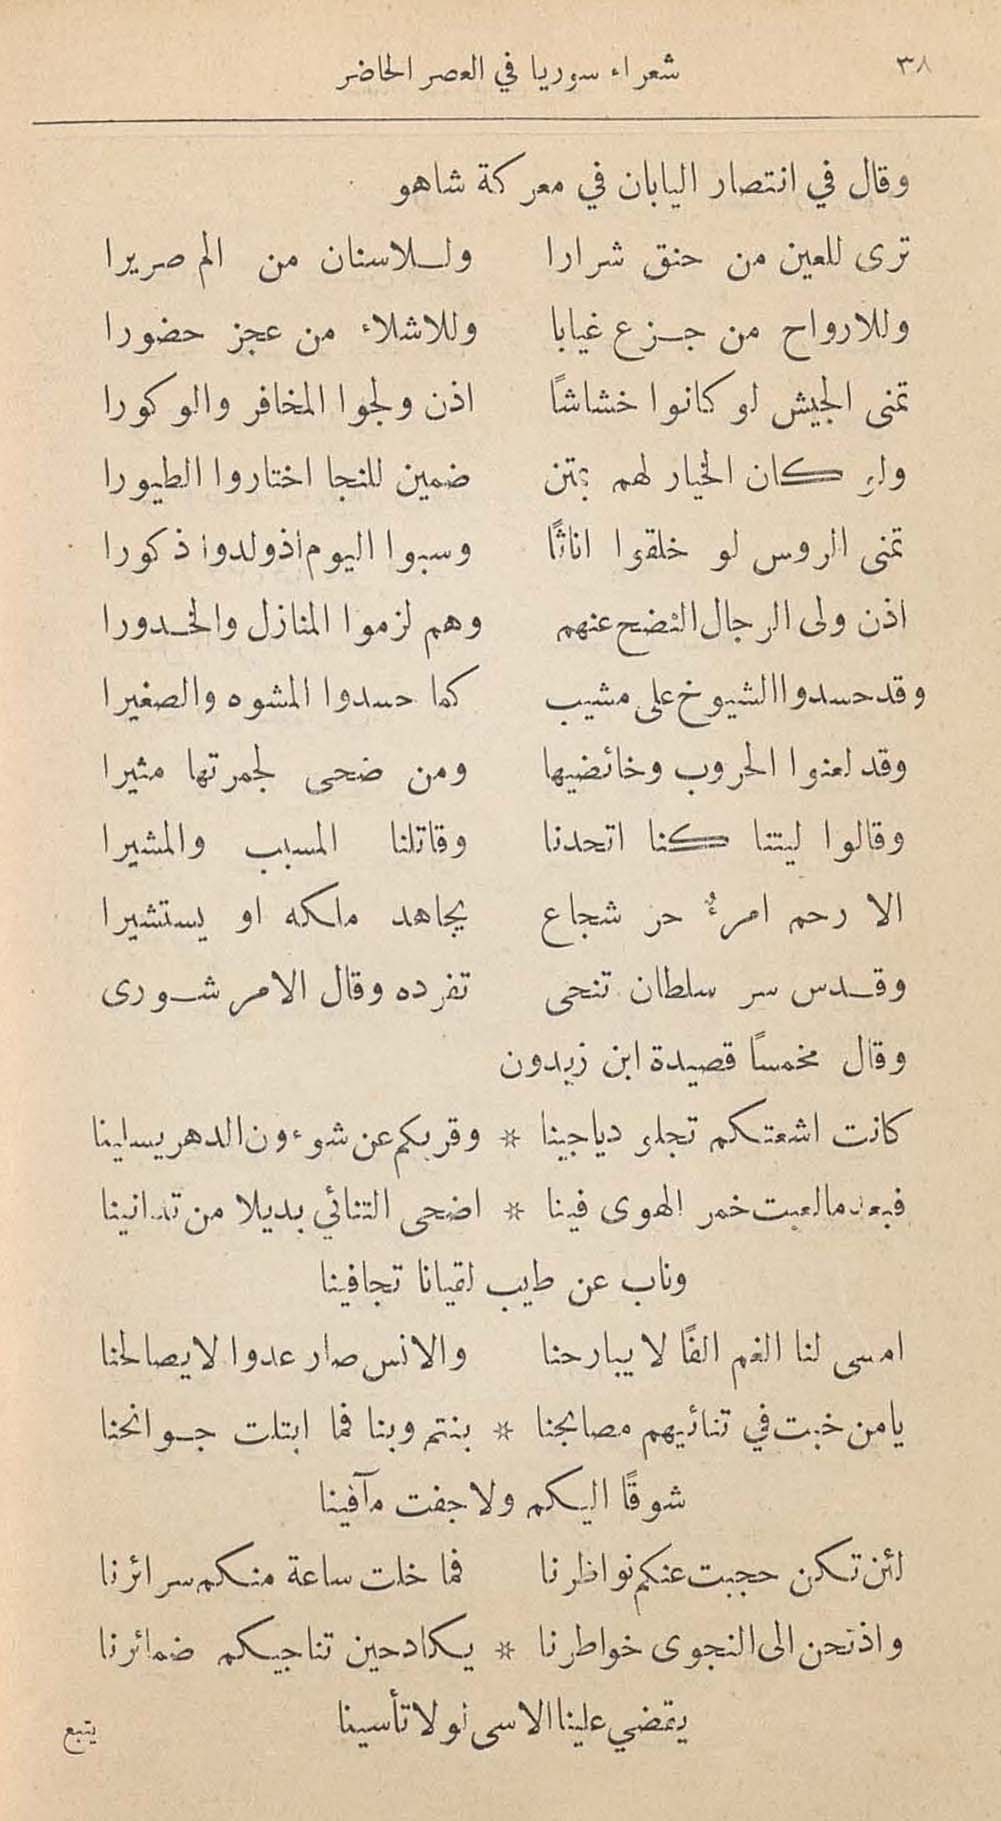 ٣٨ شعراء سوريا في العصر الحاضر
وقال في انتصار اليابان في معركة شاهو
ترى للعين من حنق شرارا وللاسنان من الم صريرا
وللارواح من جزع غيابا وللاشلاء من عجز حضورا
تمنى الجيش لو كانوا خشاشاً اذن ولجوا المخافر والوكورا
ولو كان الخيار لهم بمتن ضمين للنجا اختاروا الطيورا
تمنى الروس لو خلقوا اناثاً وسبوا اليوم اذ ولدوا ذكورا
اذن ولى الرجال النضح عنهم وهم لزموا المنازل والخدورا
وقد حسدوا الشيوخ على مشيب كما حسدوا المشوه والصغيرا
وقد لعنوا الحروب وخائضيها ومن ضحى لجمرتها مثيرا
وقالوا ليتنا كنا اتحدنا وقاتلنا المسبب والمشيرا
الا رحم امرءٌ حر شجاع يجاهد ملكه او يستشيرا
وقدس سر سلطان تنحى تفرده وقال الامر شورى
وقال مخمساً قصيدة ابن زيدون
كانت اشعتكم تجلو دياجينا * وقربكم عن شوءون الدهر يسلينا
فبعد ما لعبت خمر الهوى فينا * اضحى التنائي بديلا من تدانينا
وناب عن طيب لقيانا تجافينا
امسى لنا الغم الفاً لا يبارحنا والانس صار عدوا لا يصالحنا
يا من خبت في تنائيهم مصابحنا * بنتم وبنا فما ابتلت جوانحنا
شوقاً اليكم ولا جفت مآقينا
لئن تكن حجبت عنكم نواظرنا فما خلت ساعة منكم سرائرنا
واذ تحن الى النجوى خواطرنا * يكاد حين تناجيكم ضمائرنا
يقضي علينا الاسى لولا تأسينا
يتبع